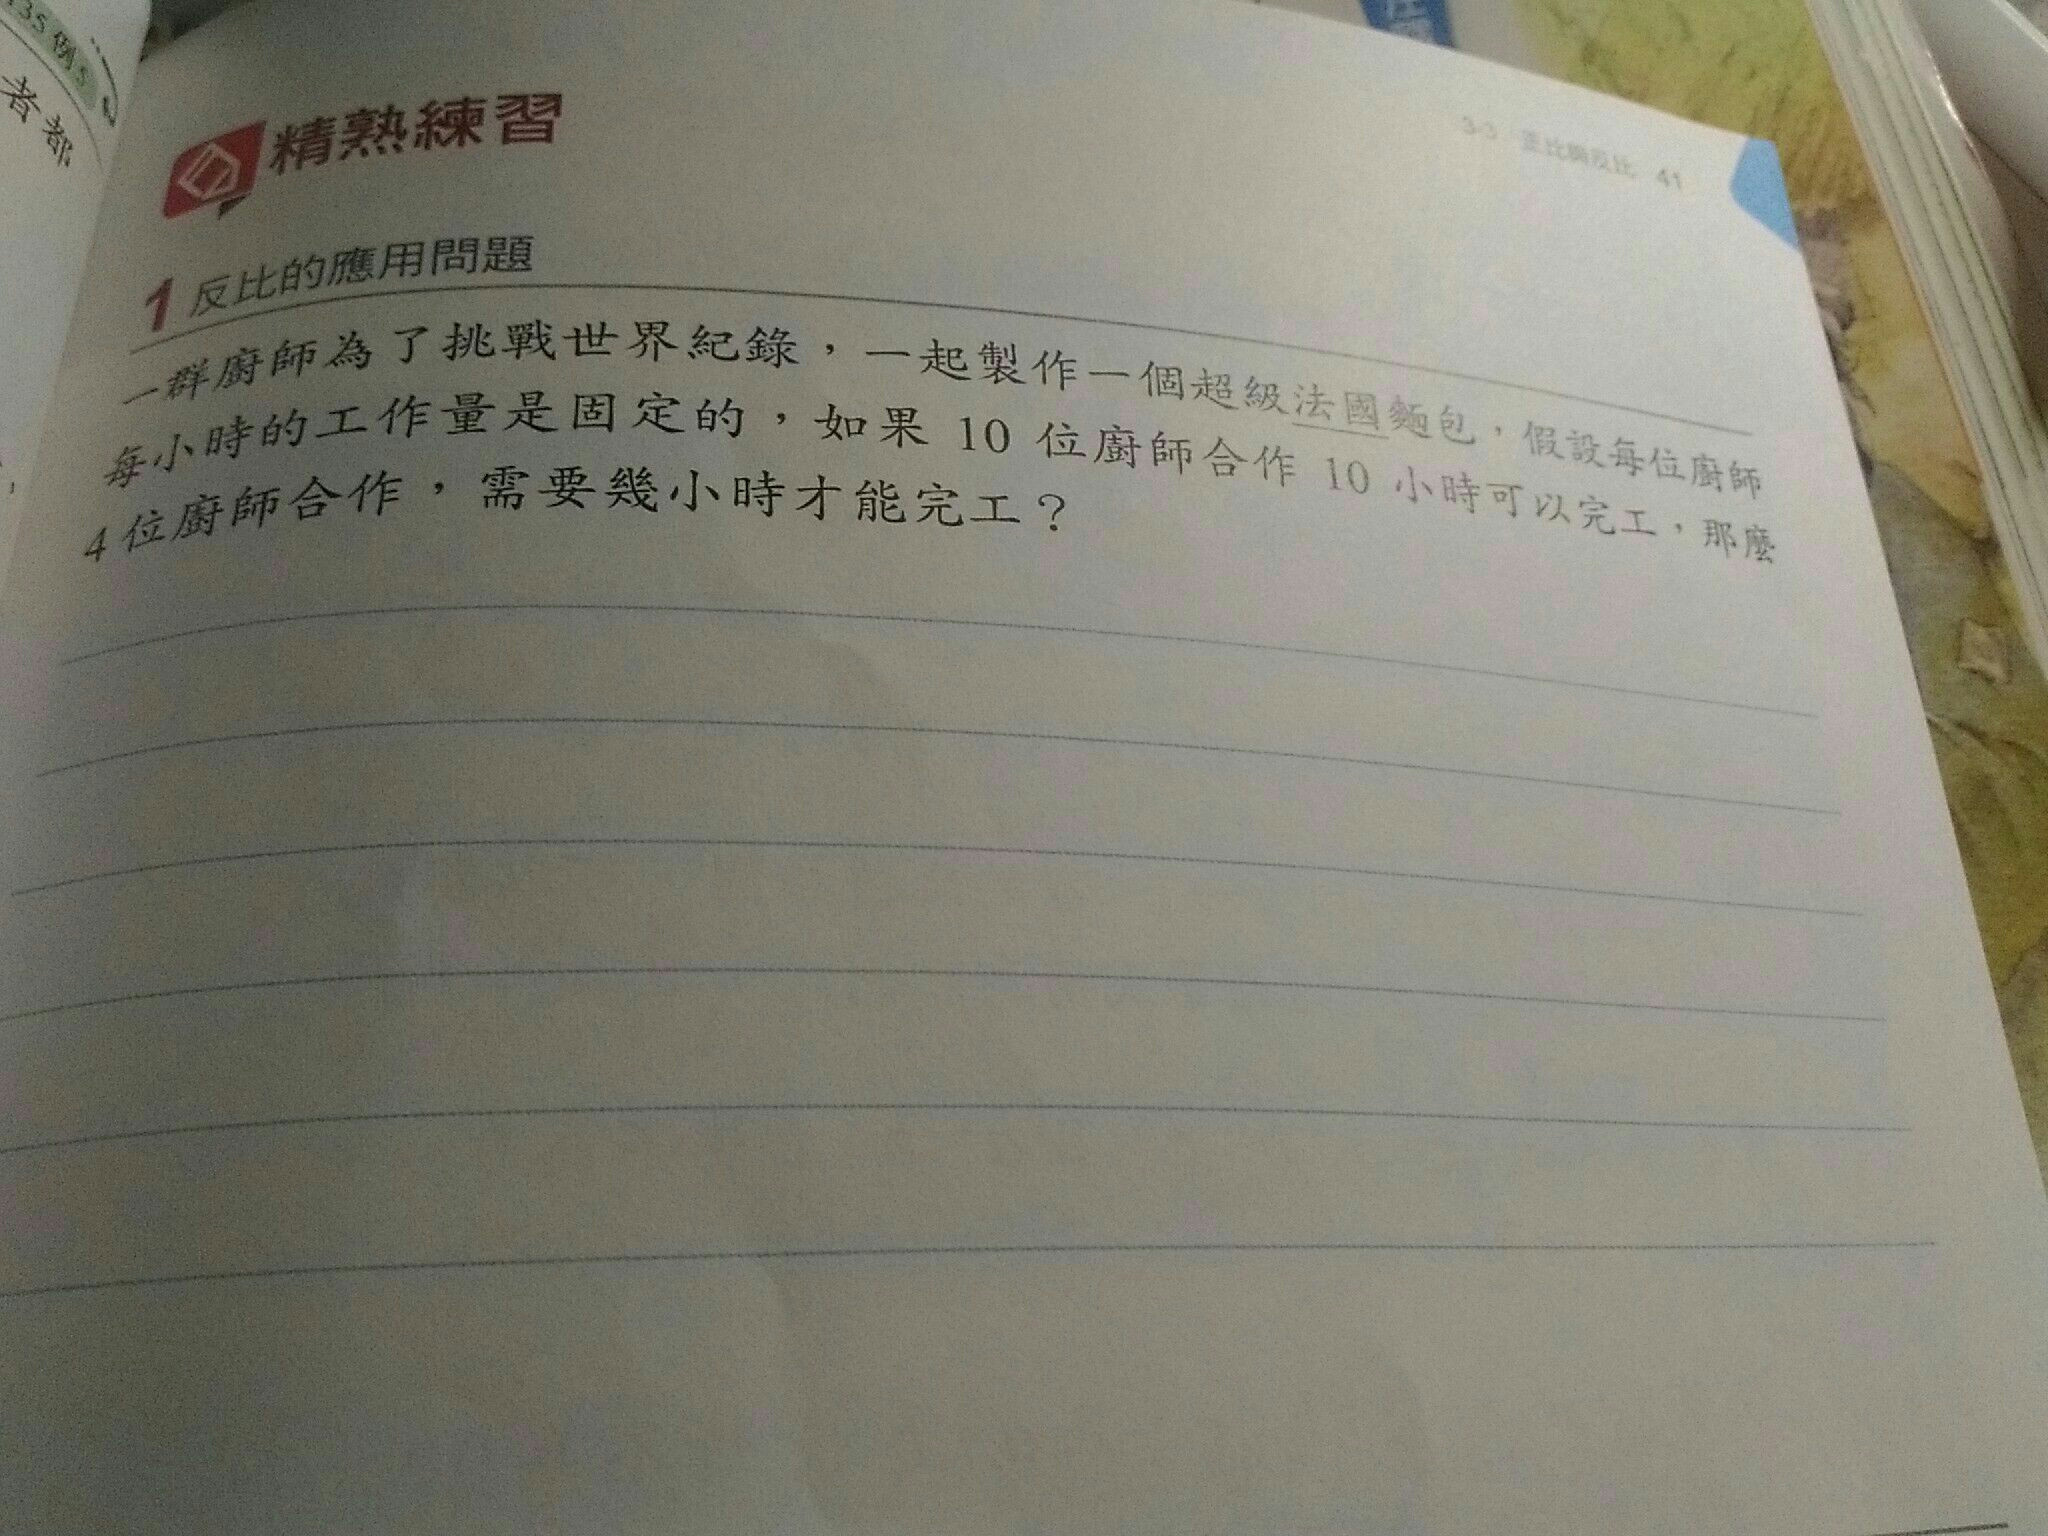 135 例 5
者都
精熟練習
3-3 正比與反比 41
1 反比的應用問題
一群廚師為了挑戰世界紀錄，一起製作一個超級法國麵包，假設每位廚師
每小時的工作量是固定的，如果 10 位廚師合作 10 小時可以完工，那麼
4 位廚師合作，需要幾小時才能完工？